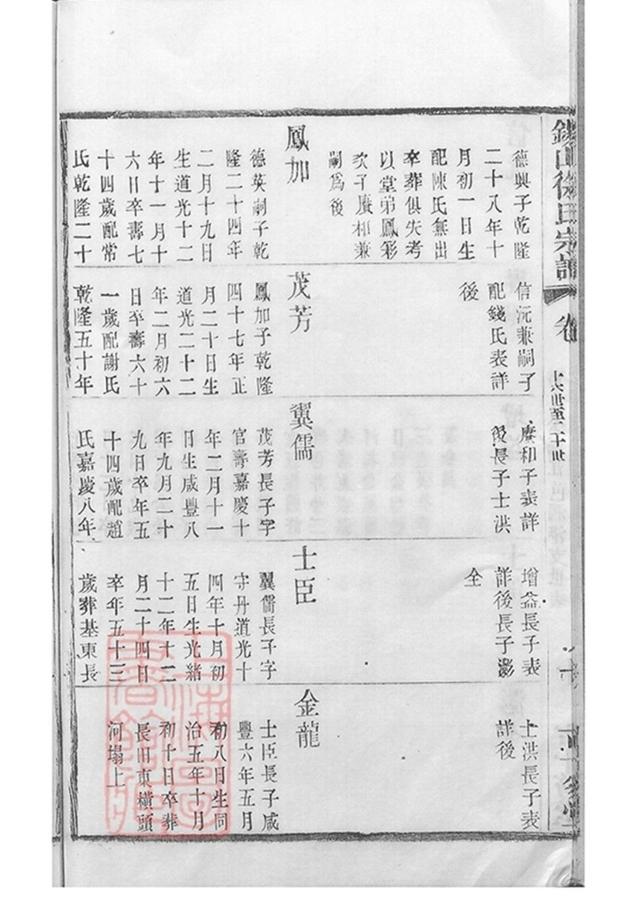 錫山徐氏宗譜
卷
德興子乾隆
二十八年十
月初一日生
配陳氏無出
卒葬俱失考
以堂弟鳳彩
次子廣和兼
嗣爲後
鳳加
德英嗣子乾
隆二十四年
二月十九日
生道光十二
年十一月十
六日卒壽七
十四歲配常
氏乾隆二十
信沅兼嗣子
配錢氏表詳
後
茂芳
鳳加子乾隆
四十七年正
月二十日生
道光二十二
年二月初六
日卒壽六十
一歲配謝氏
乾隆五十年
廣和子表詳
後長子士洪
翼儒
茂芳長子字
官壽嘉慶十
年二月十一
日生咸豐八
年九月二十
九日卒年五
十四歲配趙
氏嘉慶八年
增益長子表
詳後長子澎
全
士臣
翼儒長子字
守丹道光十
四年十月初
五日生光緒
十二年十二
月二十四日
卒年五十三
歲葬基東長
士洪長子表
詳後
金龍
士臣長子咸
豐六年五月
初八日生同
治五年十月
初十日卒葬
長田東橫頭
河塌上